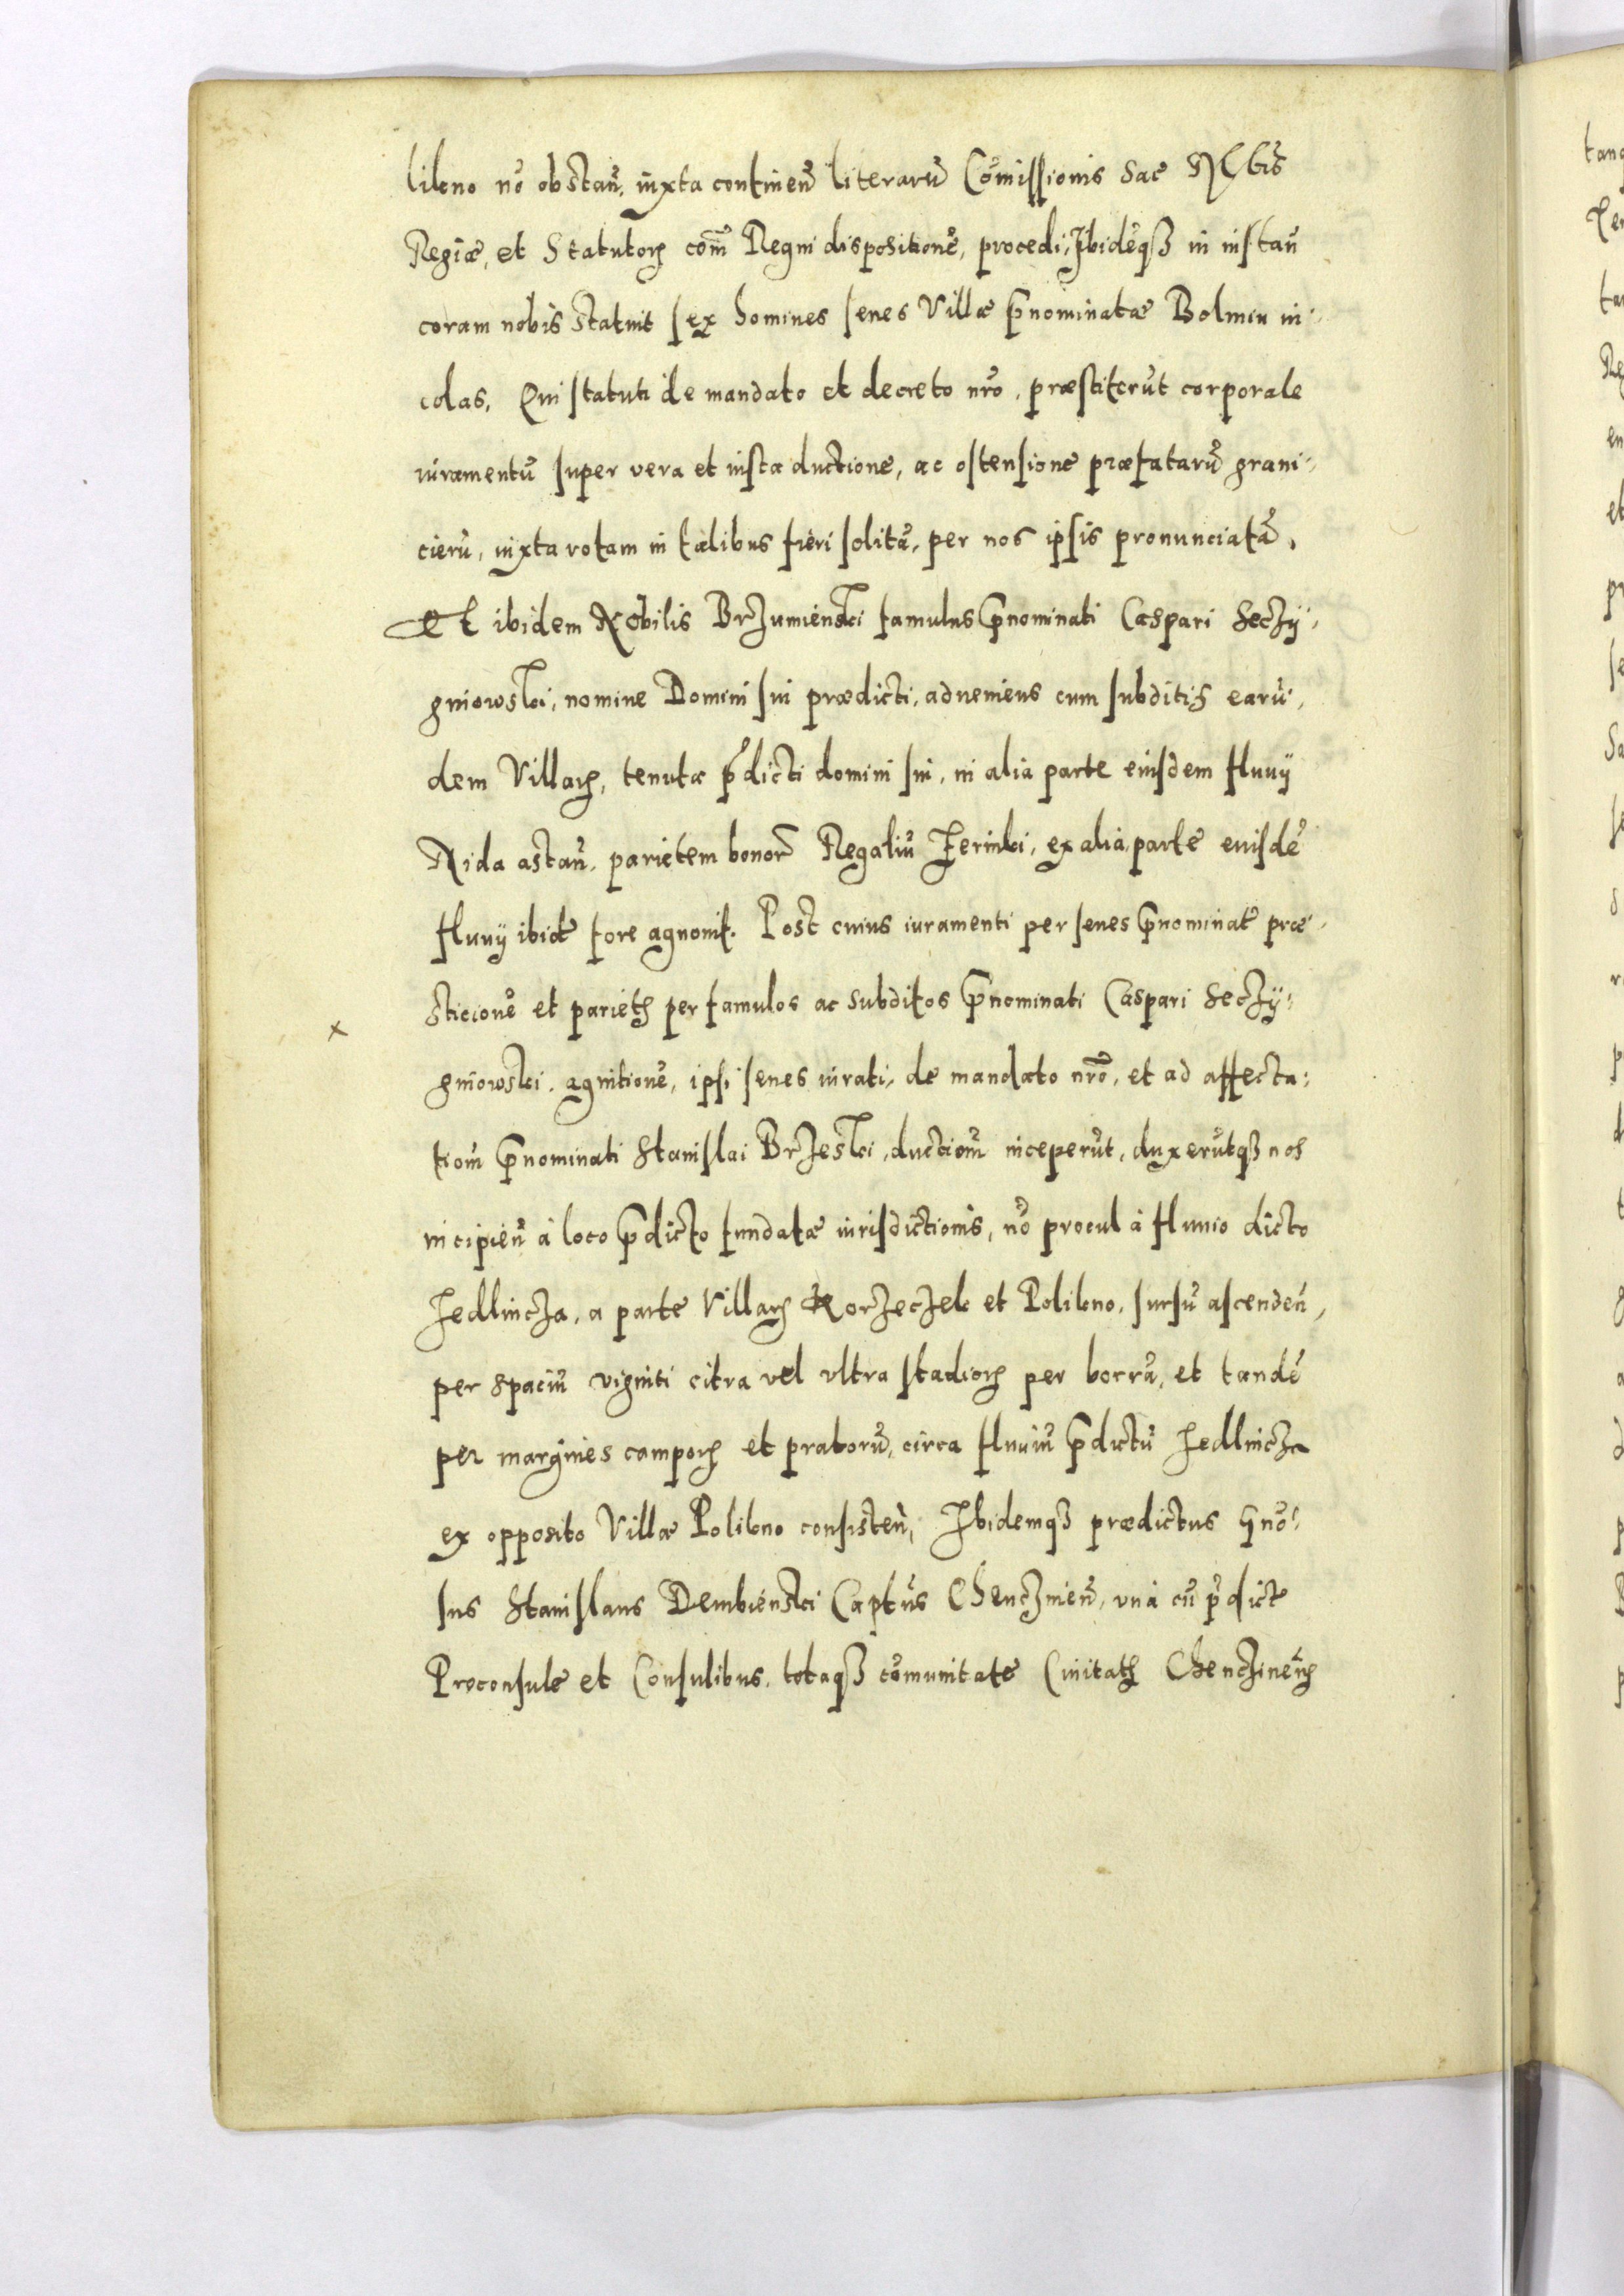 likno nō obstan̄, iuxta continen̄ literarū Cōmissionis Sac̄ Mtis
Regiæ, et Statutorꝝ com̄ Regni dispositionē, procedi, Ibidēqꝫ in instan̄
coram nobis statuit sex homines senes Villæ p̄nominatæ Bolmin in:
colas, Qui statuti de mandato et decreto nr̄o, præstiterūt corporale
iuramentū super vera et iusta ductione, ac ostensione præfatarū grani:
cierū, iuxta rotam in talibus fieri solitā, per nos ipsis pronunciatā,
Et ibidem Nobilis Brzumienski famulus p̄nominati Caspari Seczÿ:
gniowski, nomine Domini sui prædicti, adueniens cum subditis earū:
dem Villarꝝ, tenutæ p̄dicti domini sui, in alia parte eiusdem fluuÿ
Nida astan̄, parietem bonor̄ Regaliū Zerniki, ex alia parte eiusdē
fluuÿ ibid̄ fore agnouit. Post cuius iuramenti per senes p̄nominat̄ præ:
sticionē et parietꝭ per famulos ac subditos p̄nominati Caspari Seczÿ:
gniowski, agnitionē, ipsi senes iurati, de mandato nr̄o, et ad affecta:
tiom̄ p̄nominati Stanislai Brzeski, ductiom̄ inceperūt, duxerūtqꝫ nos
incipien̄ à loco p̄dicto fundatæ iurisdictionis, nō procul à fluuio dicto
Jedlincza, a parte Villarꝝ Korzeczek et Polikno, sursū ascenden̄,
per spaciū viginti citra vel vltra stadiorꝝ per borrā, et tandē
per margines camporꝝ et pratorū, circa fluuiū p̄dictū Jedlincza
ex opposito Villæ Polikno consisten̄, Ibidemqꝫ prædictus Gnō:
sus Stanislaus Dembienski Captūs Chenczinen̄, vnà cū p̄dict̄
Proconsule et Consulibus, totaqꝫ cōmunitate Ciuitatꝭ Chenczinen̄ꝭ